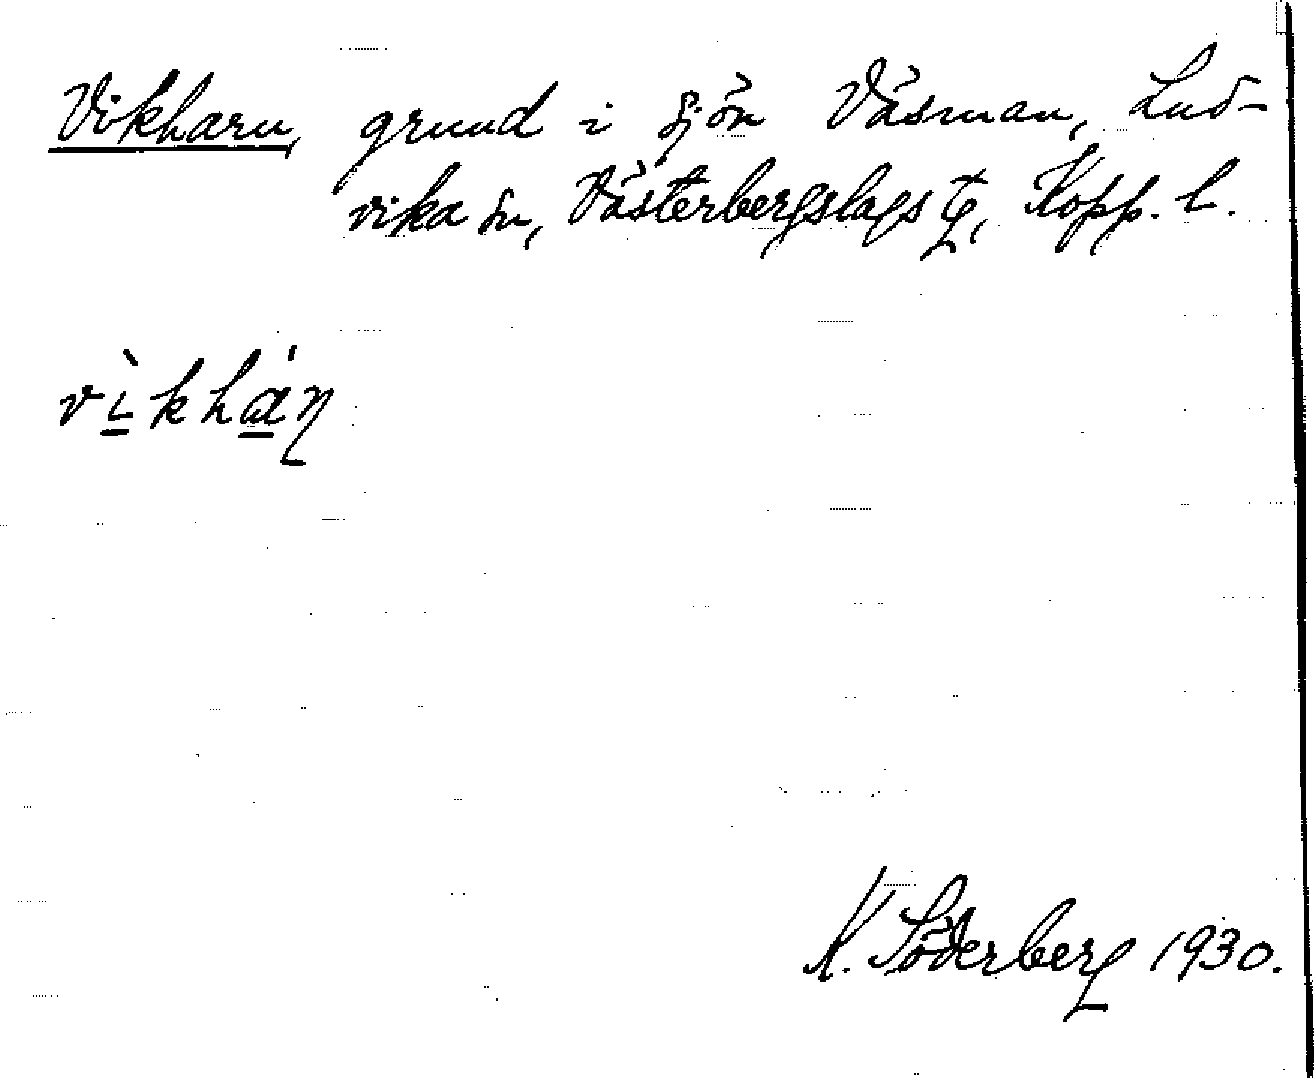 Vikharu, grund i sjön Väsman, Lud-
vika sn, Västerbergslags tg, Kopp. l.
vìkháṇ
K. Söderberg 1930.